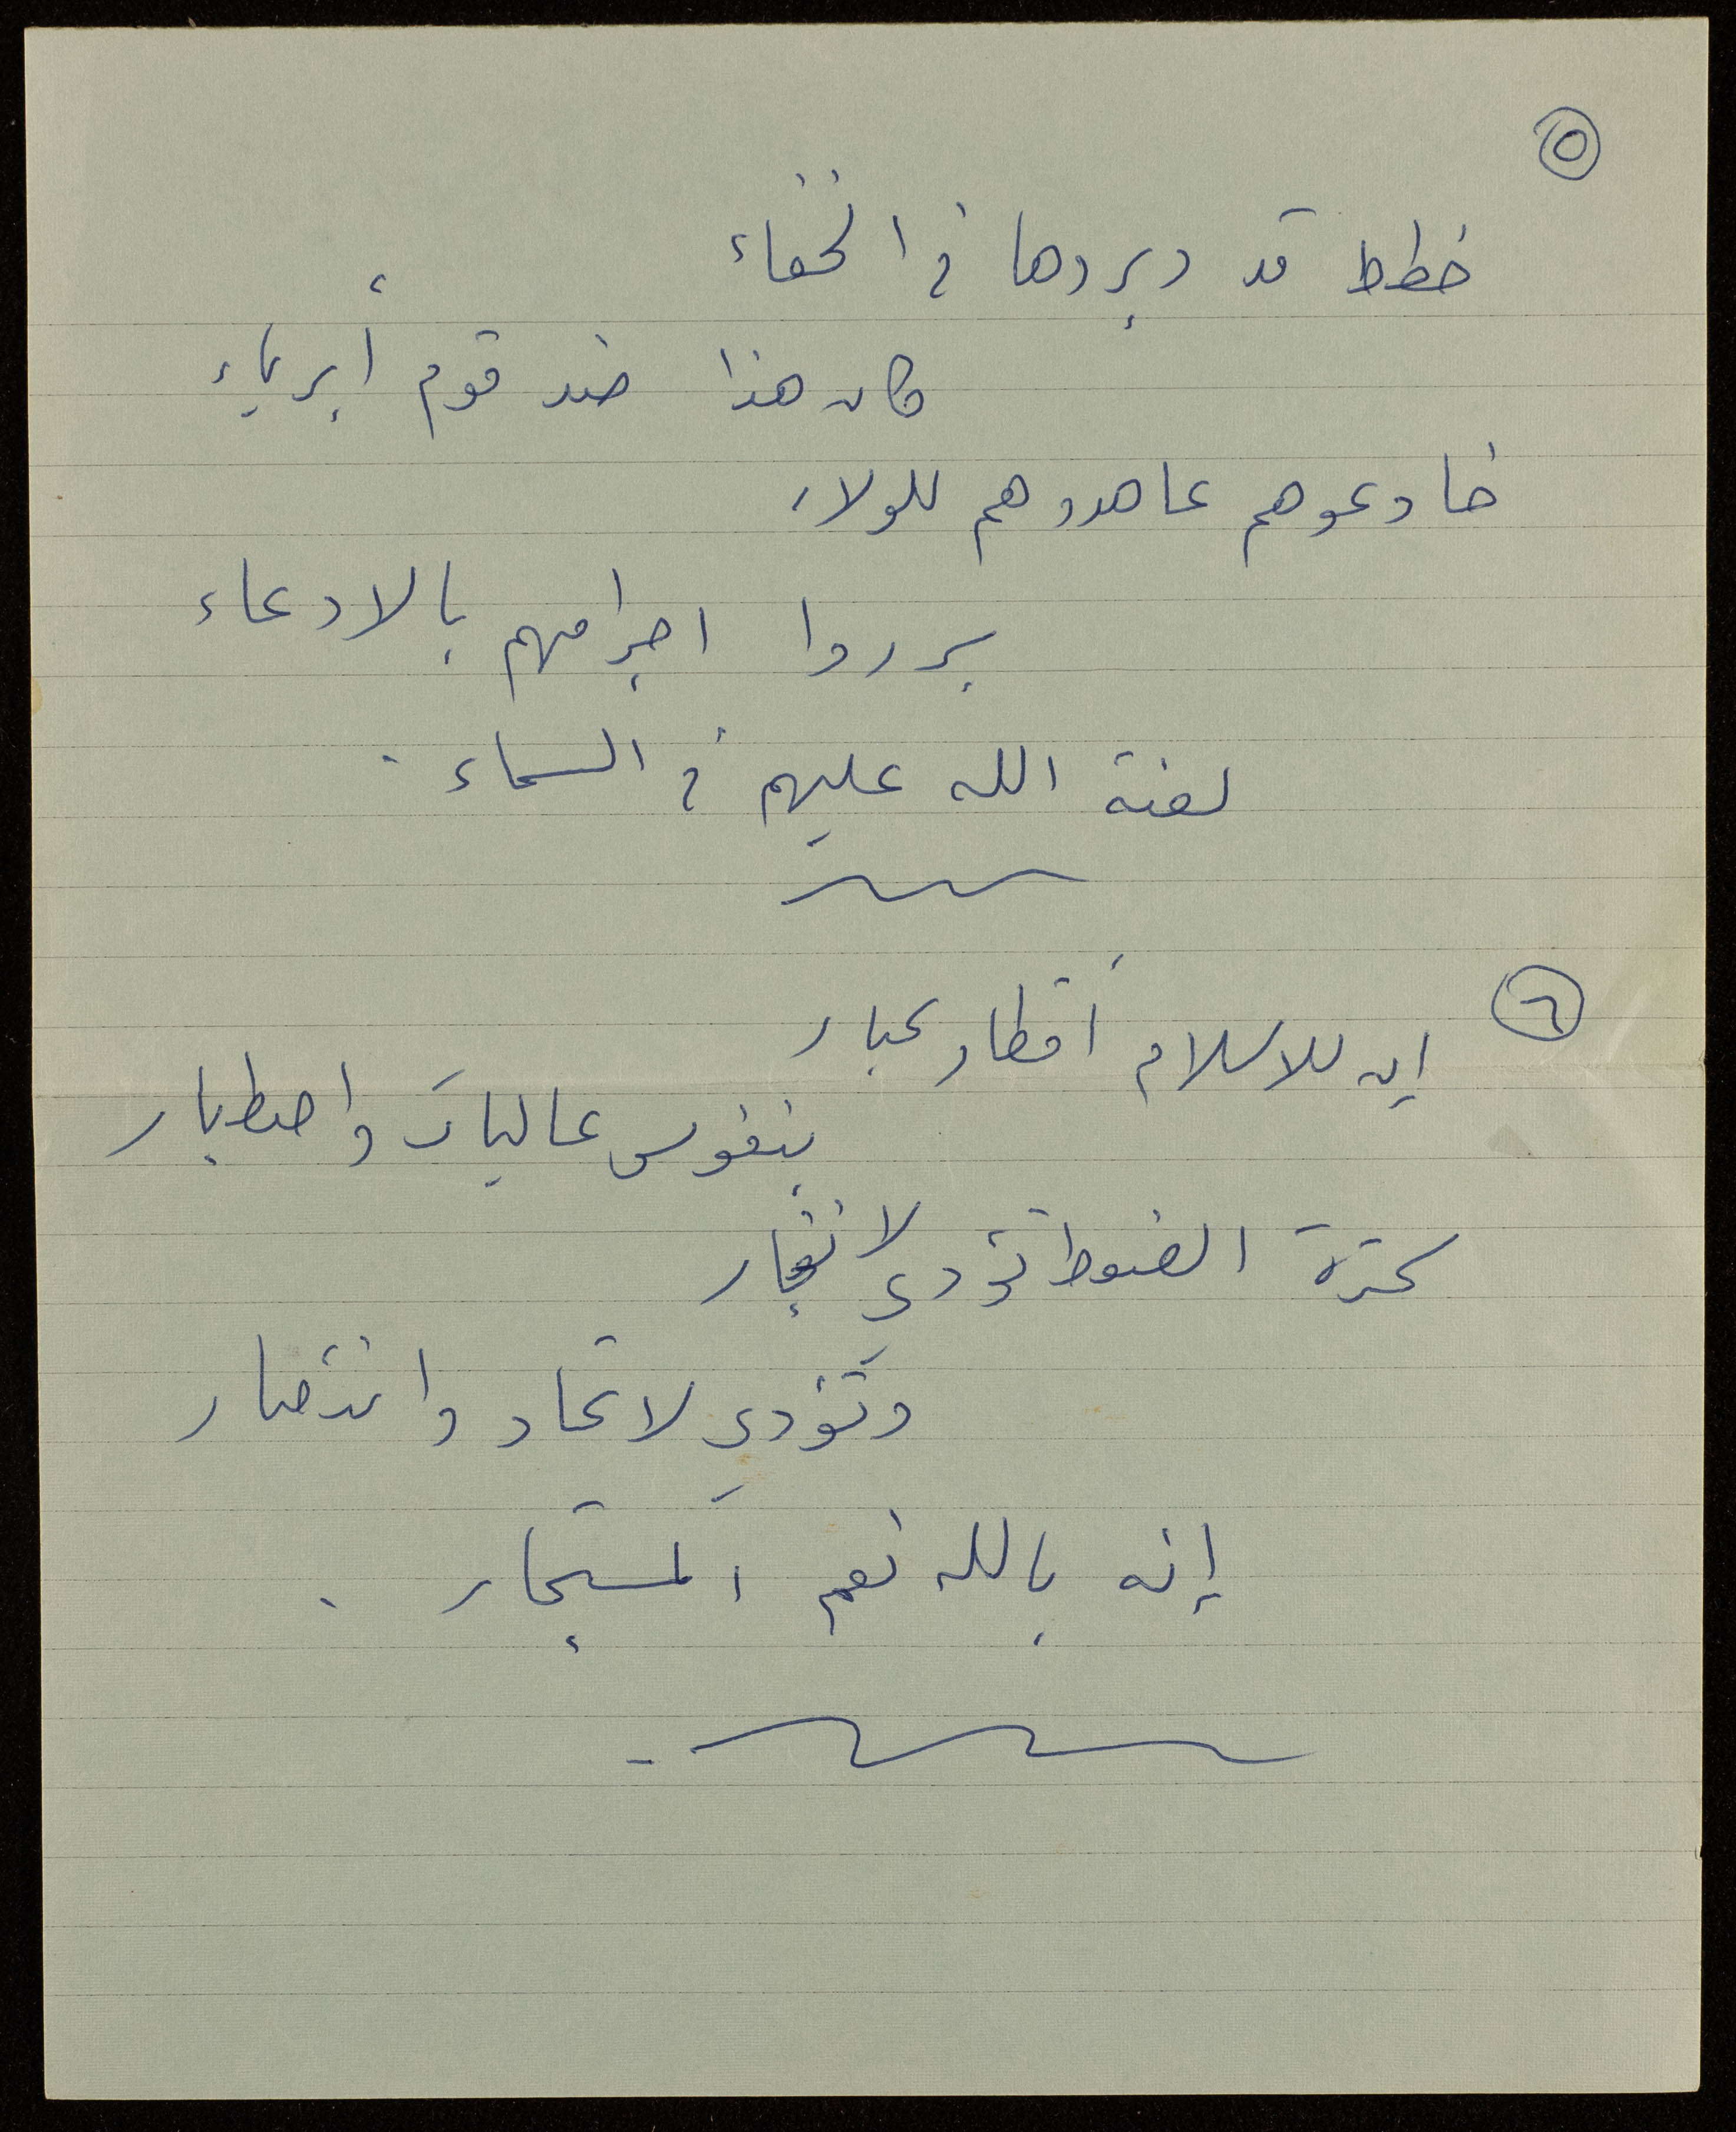 ٥
خطط قد دبروها في الخفاء
كان هذا ضد قوم أبرياء
خادعوهم عاهدوهم للولاء
برروا اجرامهم بالادعاء
لعنة الله عليهم في السماء .
٦
إن للاسلام أقطار كبار
بنفوس عاليات واصطبار
كثرة الضغوط تؤدي لانفجار
وتؤدي لاتحاد وانتصار
إنه بالله نعم المستجار .